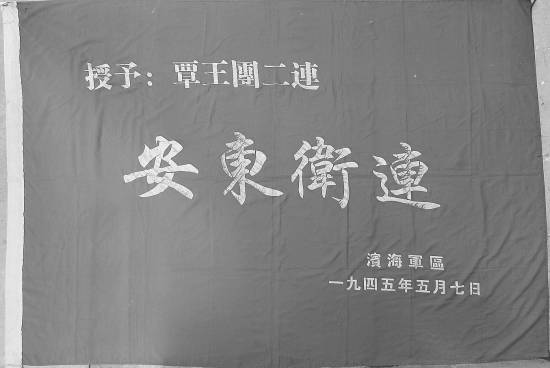 授予：覃王團二連
安東衛連
濱海軍區
一九四五年五月七日